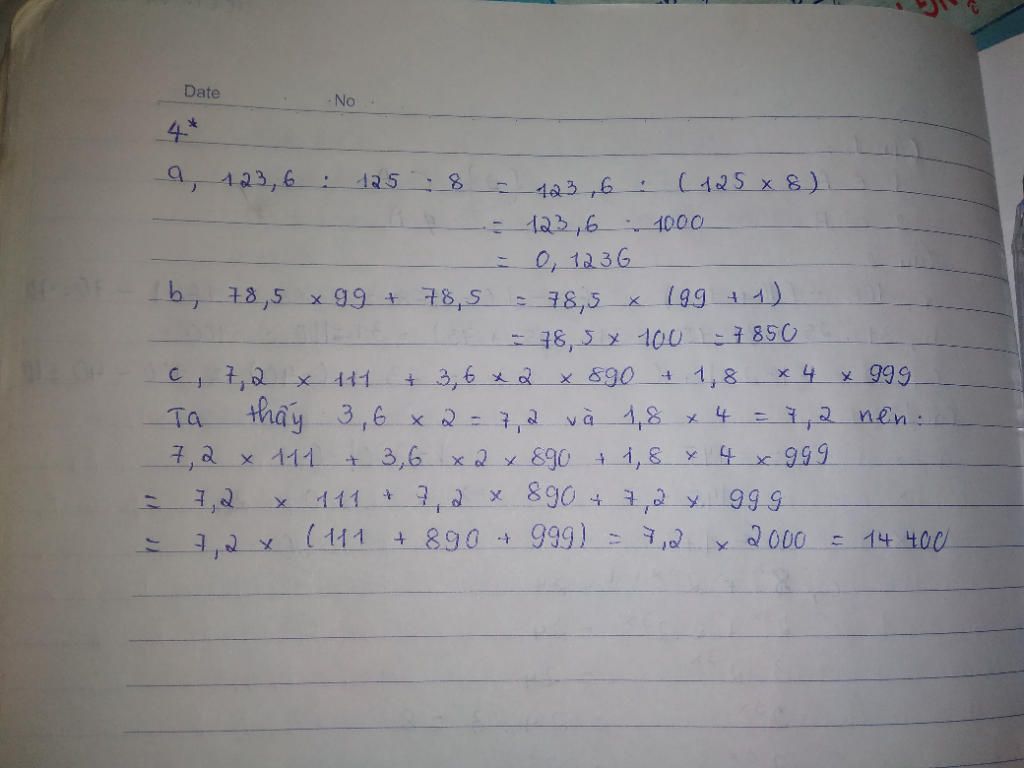 Date No
4*
a, 123,6 : 125 : 8 = 123,6 : (125 × 8)
= 123,6 : 1000
= 0,1236
b, 78,5 × 99 + 78,5 = 78,5 × (99 + 1)
= 78,5 × 100 = 7850
c, 7,2 × 111 + 3,6 × 2 × 890 + 1,8 × 4 × 999
Ta thấy 3,6 × 2 = 7,2 và 1,8 × 4 = 7,2 nên:
7,2 × 111 + 3,6 × 2 × 890 + 1,8 × 4 × 999
= 7,2 × 111 + 7,2 × 890 + 7,2 × 999
= 7,2 × (111 + 890 + 999) = 7,2 × 2000 = 14 400